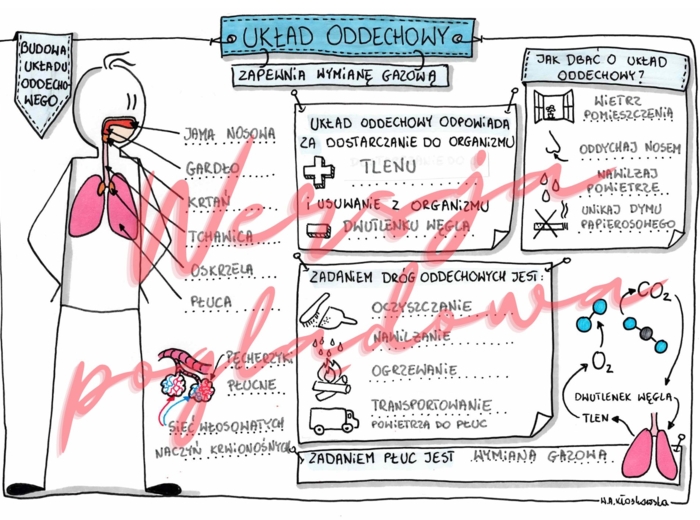 UKŁAD ODDECHOWY
ZAPEWNIA WYMIANĘ GAZOWĄ
BUDOWA
UKŁADU
ODDECHO-
WEGO
JAMA NOSOWA
GARDŁO
KRTAŃ
TCHAWICA
OSKRZELA
PŁUCA
PĘCHERZYKI
PŁUCNE
SIEĆ WŁOSOWATYCH
NACZYŃ KRWIONOŚNYCH
UKŁAD ODDECHOWY ODPOWIADA
ZA DOSTARCZANIE DO ORGANIZMU
TLENU
I USUWANIE Z ORGANIZMU
DWUTLENKU WĘGLA
ZADANIEM DRÓG ODDECHOWYCH JEST:
OCZYSZCZANIE
NAWILŻANIE
OGRZEWANIE
TRANSPORTOWANIE
POWIETRZA DO PŁUC
ZADANIEM PŁUC JEST WYMIANA GAZOWA
JAK DBAĆ O UKŁAD
ODDECHOWY?
WIETRZ
POMIESZCZENIA
ODDYCHAJ NOSEM
NAWILŻAJ
POWIETRZE
UNIKAJ DYMU
PAPIEROSOWEGO
CO2
O2
DWUTLENEK WĘGLA
TLEN
Wersja
poglądowa